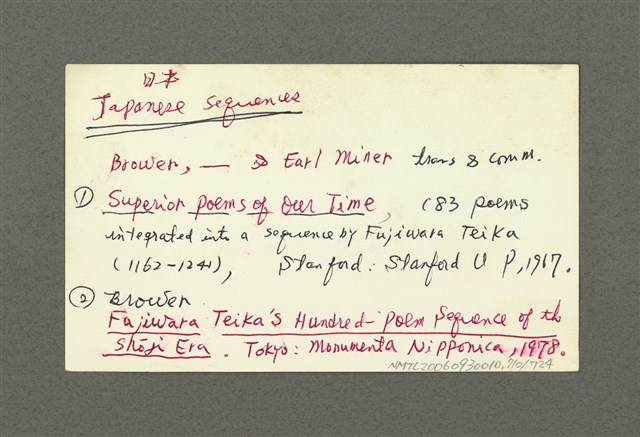 日本
Japanese sequences
Brower, — & Earl Miner trans & comm.
① Superior poems of Our Time, (83 poems
integrated into a sequence by Fujiwara Teika
(1162-1241), Stanford: Stanford U P, 1967.
② Brower
Fujiwara Teika's Hundred-Poem Sequence of the
Shōji Era. Tokyo: Monumenta Nipponica, 1978.
NMTL20060930010,710/724